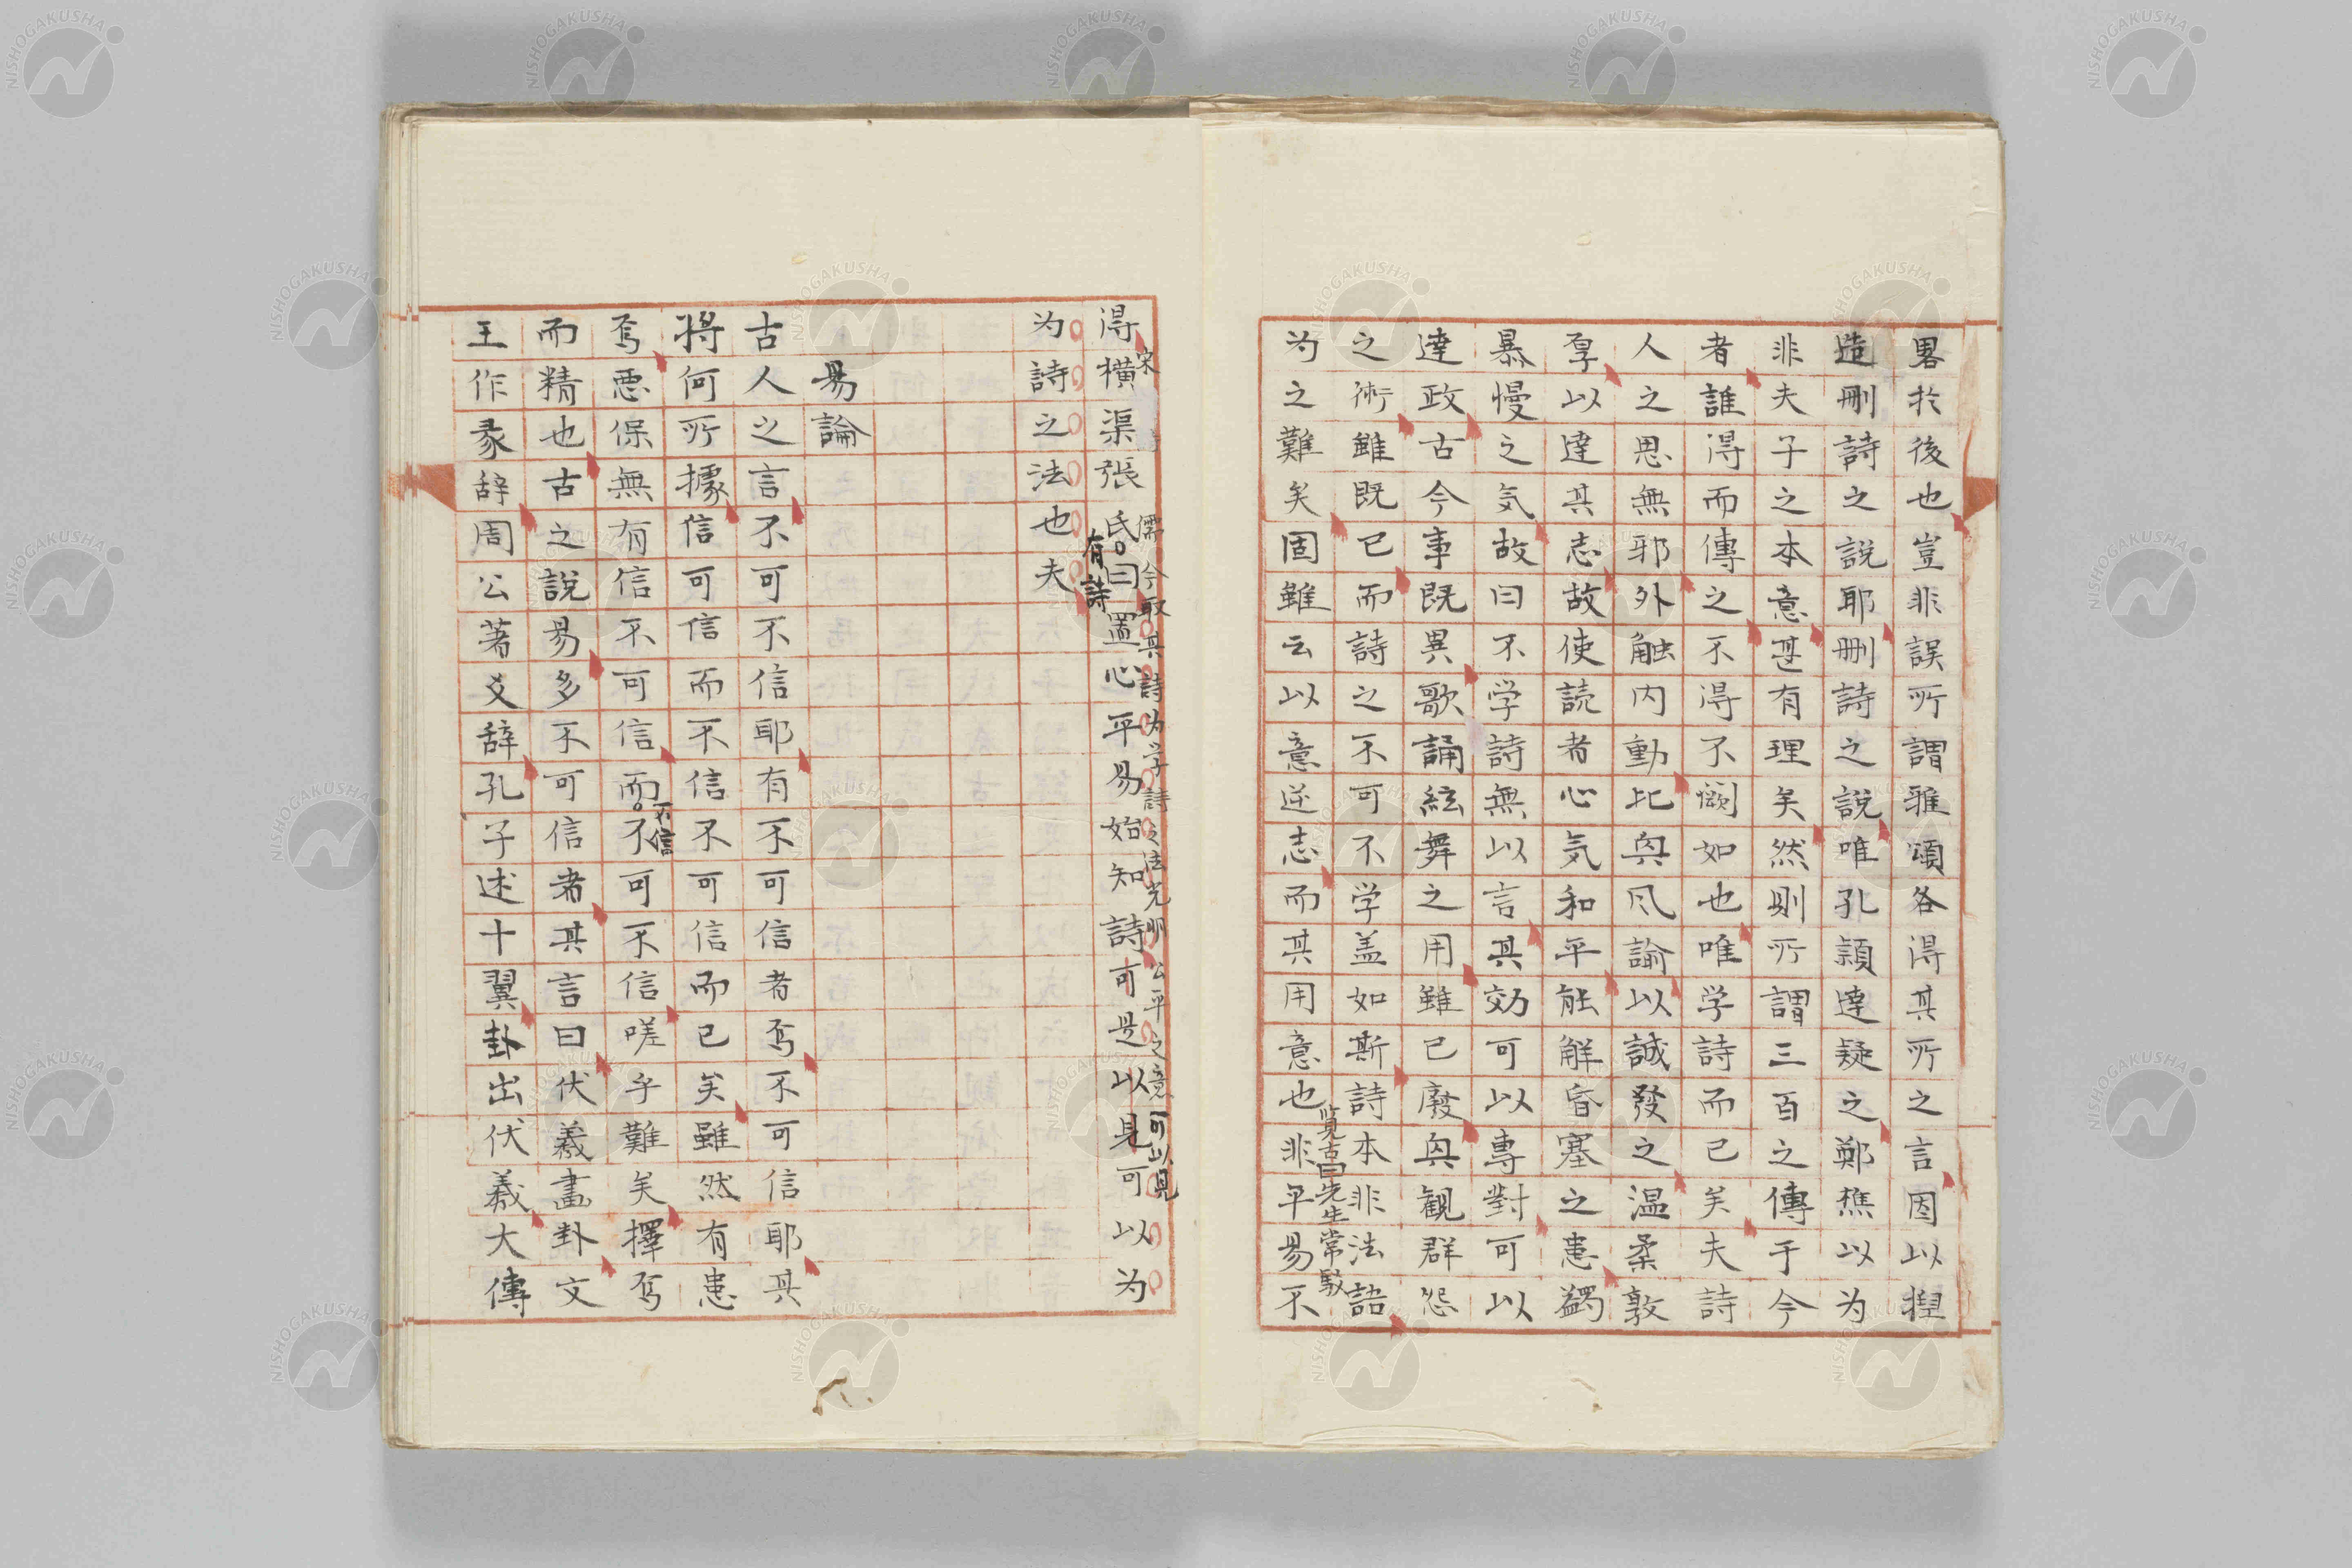 畧於後也豈非誤所謂雅頌各得其所之言因以揑
造刪詩之說耶刪詩之說唯孔穎達疑之鄭樵以为
非夫子之本意甚有理矣然則所謂三百之傳于今
者誰得而傳之不得不闕如也唯学詩而已矣夫詩
人之思無邪外触内動比與风諭以誠發之温柔敦
厚以達其志故使読者心気和平能解昏塞之患蠲
暴慢之気故曰不学詩無以言其効可以專對可以
達政古今事既異歌誦絃舞之用雖已廢與観群怨
之術雖既已而詩之不可不学盖如斯詩本非法語
覧古曰先生常駁
为之難矣固雖云以意逆志而其用意也非平易不
宋儒今取其詩为学詩之法光明公平之意可以見
得横渠張氏曰置心平易始知詩可是以見可以为
有詩
为詩之法也夫
易論
古人之言不可不信耶有不可信者焉不可信耶其
将何所據信可信而不信不可信而已矣雖然有患
焉悪保無有信不可信而不可不信嗟乎難矣擇焉
不信
而精也古之說易多不可信者其言曰伏羲畫卦文
王作彖辞周公著爻辞孔子述十翼卦出伏羲大傳
NISHOGAKUSHA